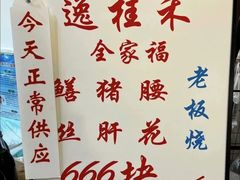 逸桂禾
今天正常供应
全家福
鳝丝
猪肝
腰花
老板烧
666块